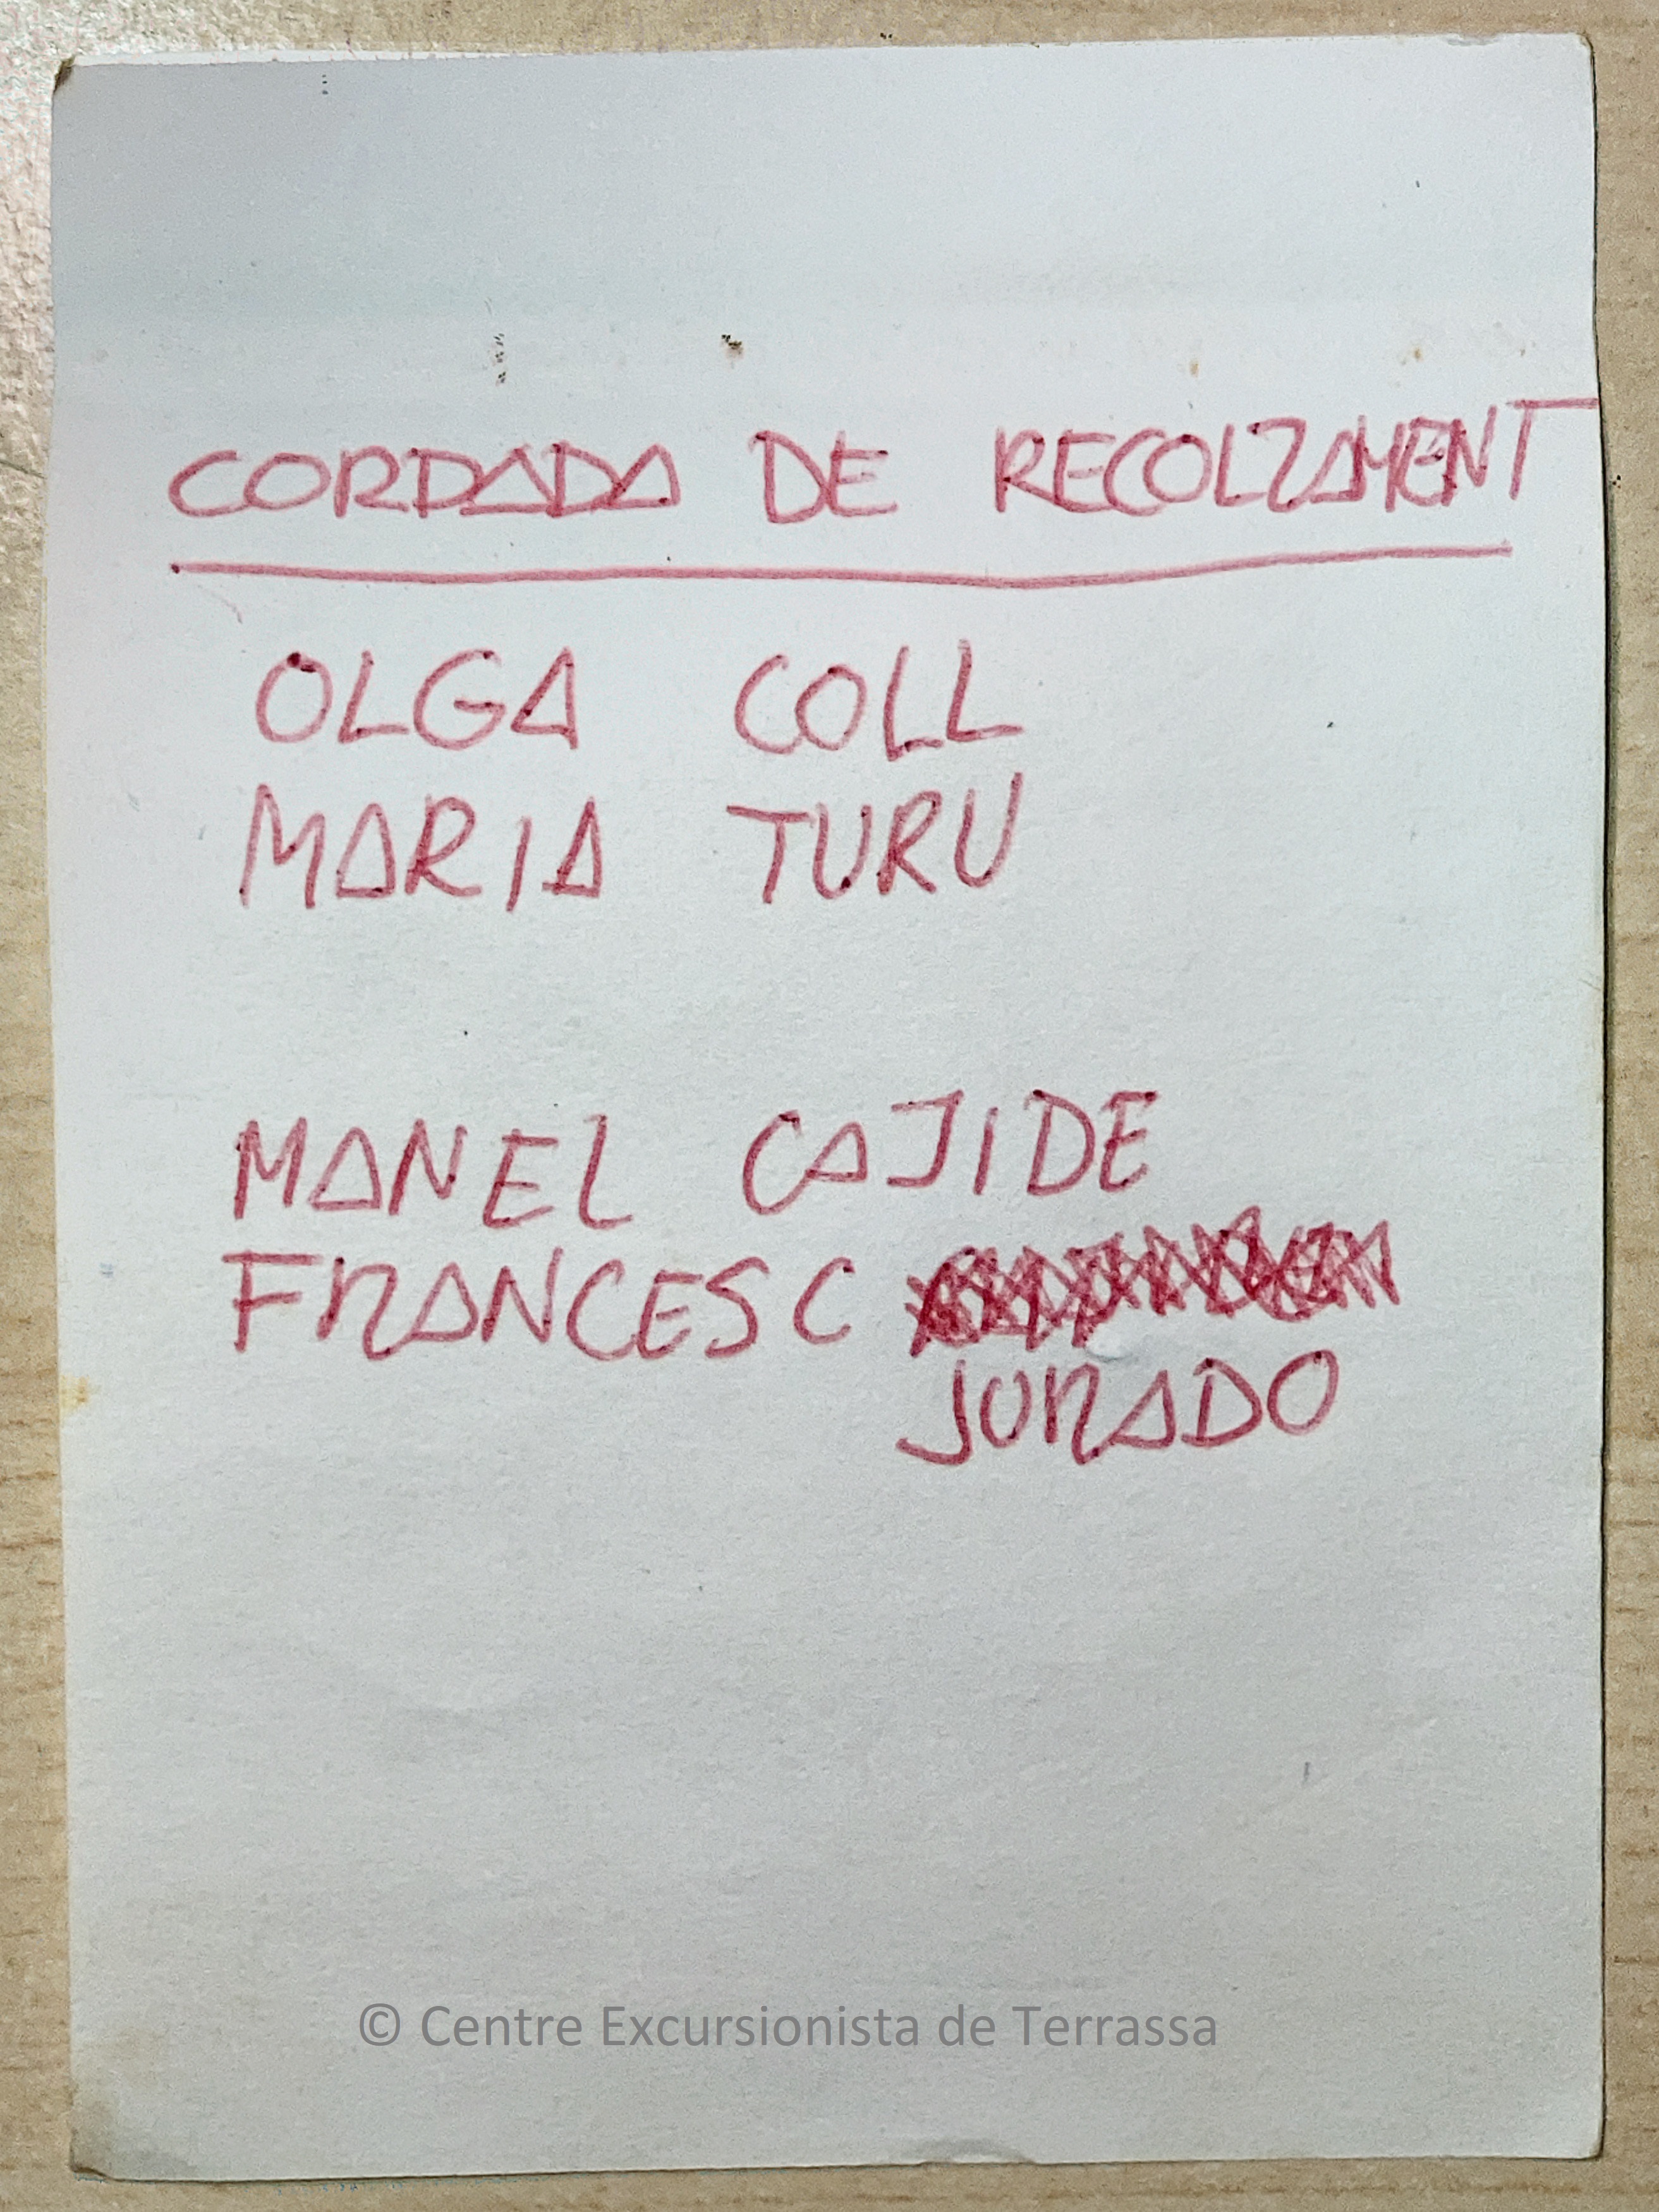 CORDADA DE RECOLZAMENT
OLGA COLL
MARIA TURU
MANEL CAJIDE
FRANCESC
JURADO
© Centre Excursionista de Terrassa